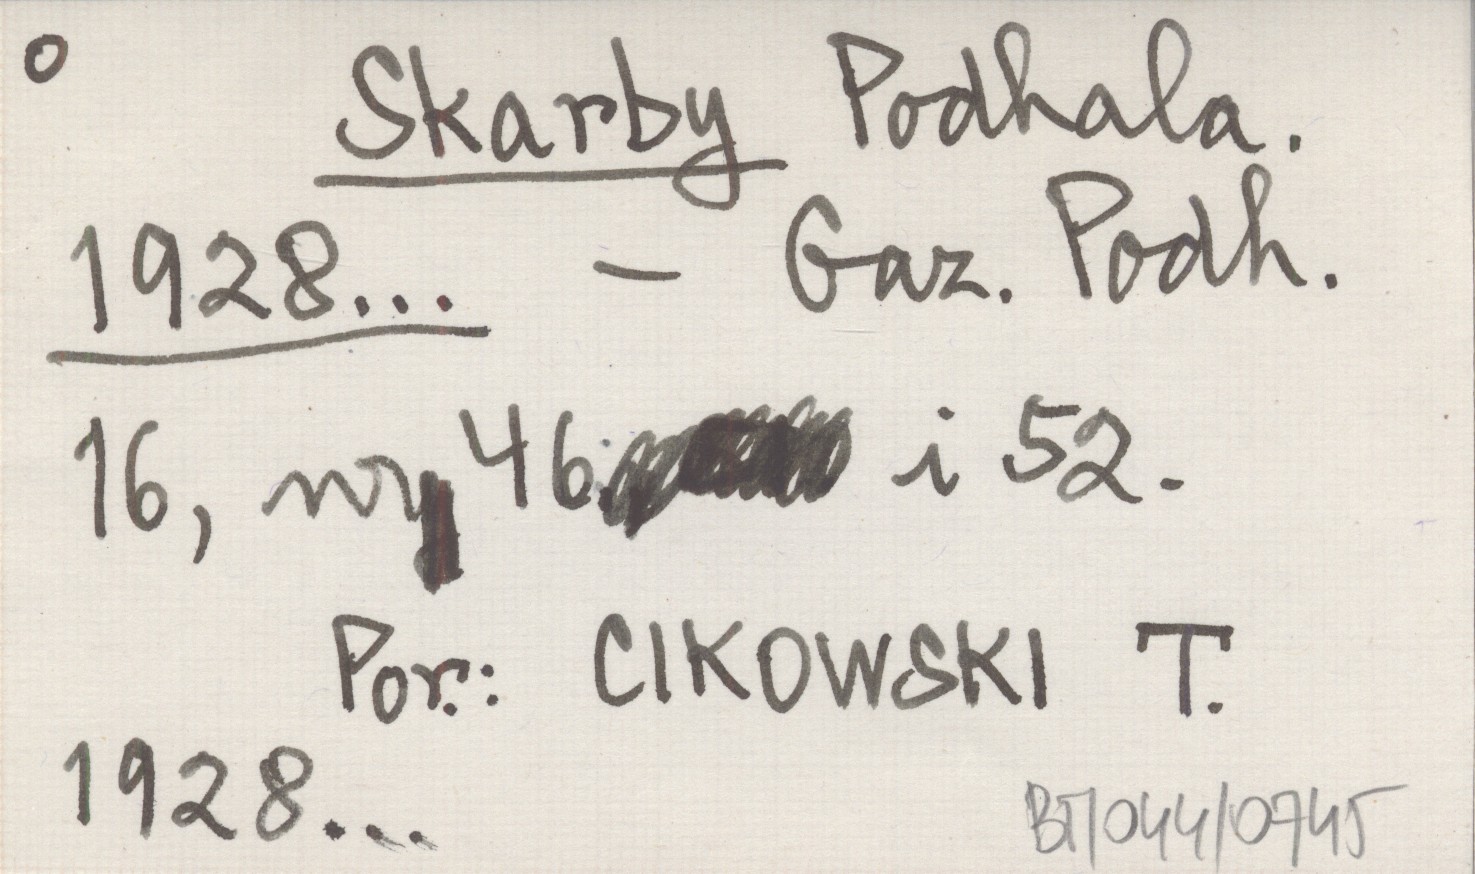 o Skarby Podhala.
1928... – Gaz. Podh.
16, nry 46 i 52.
Por.: CIKOWSKI T.
1928...
BT/044/0745